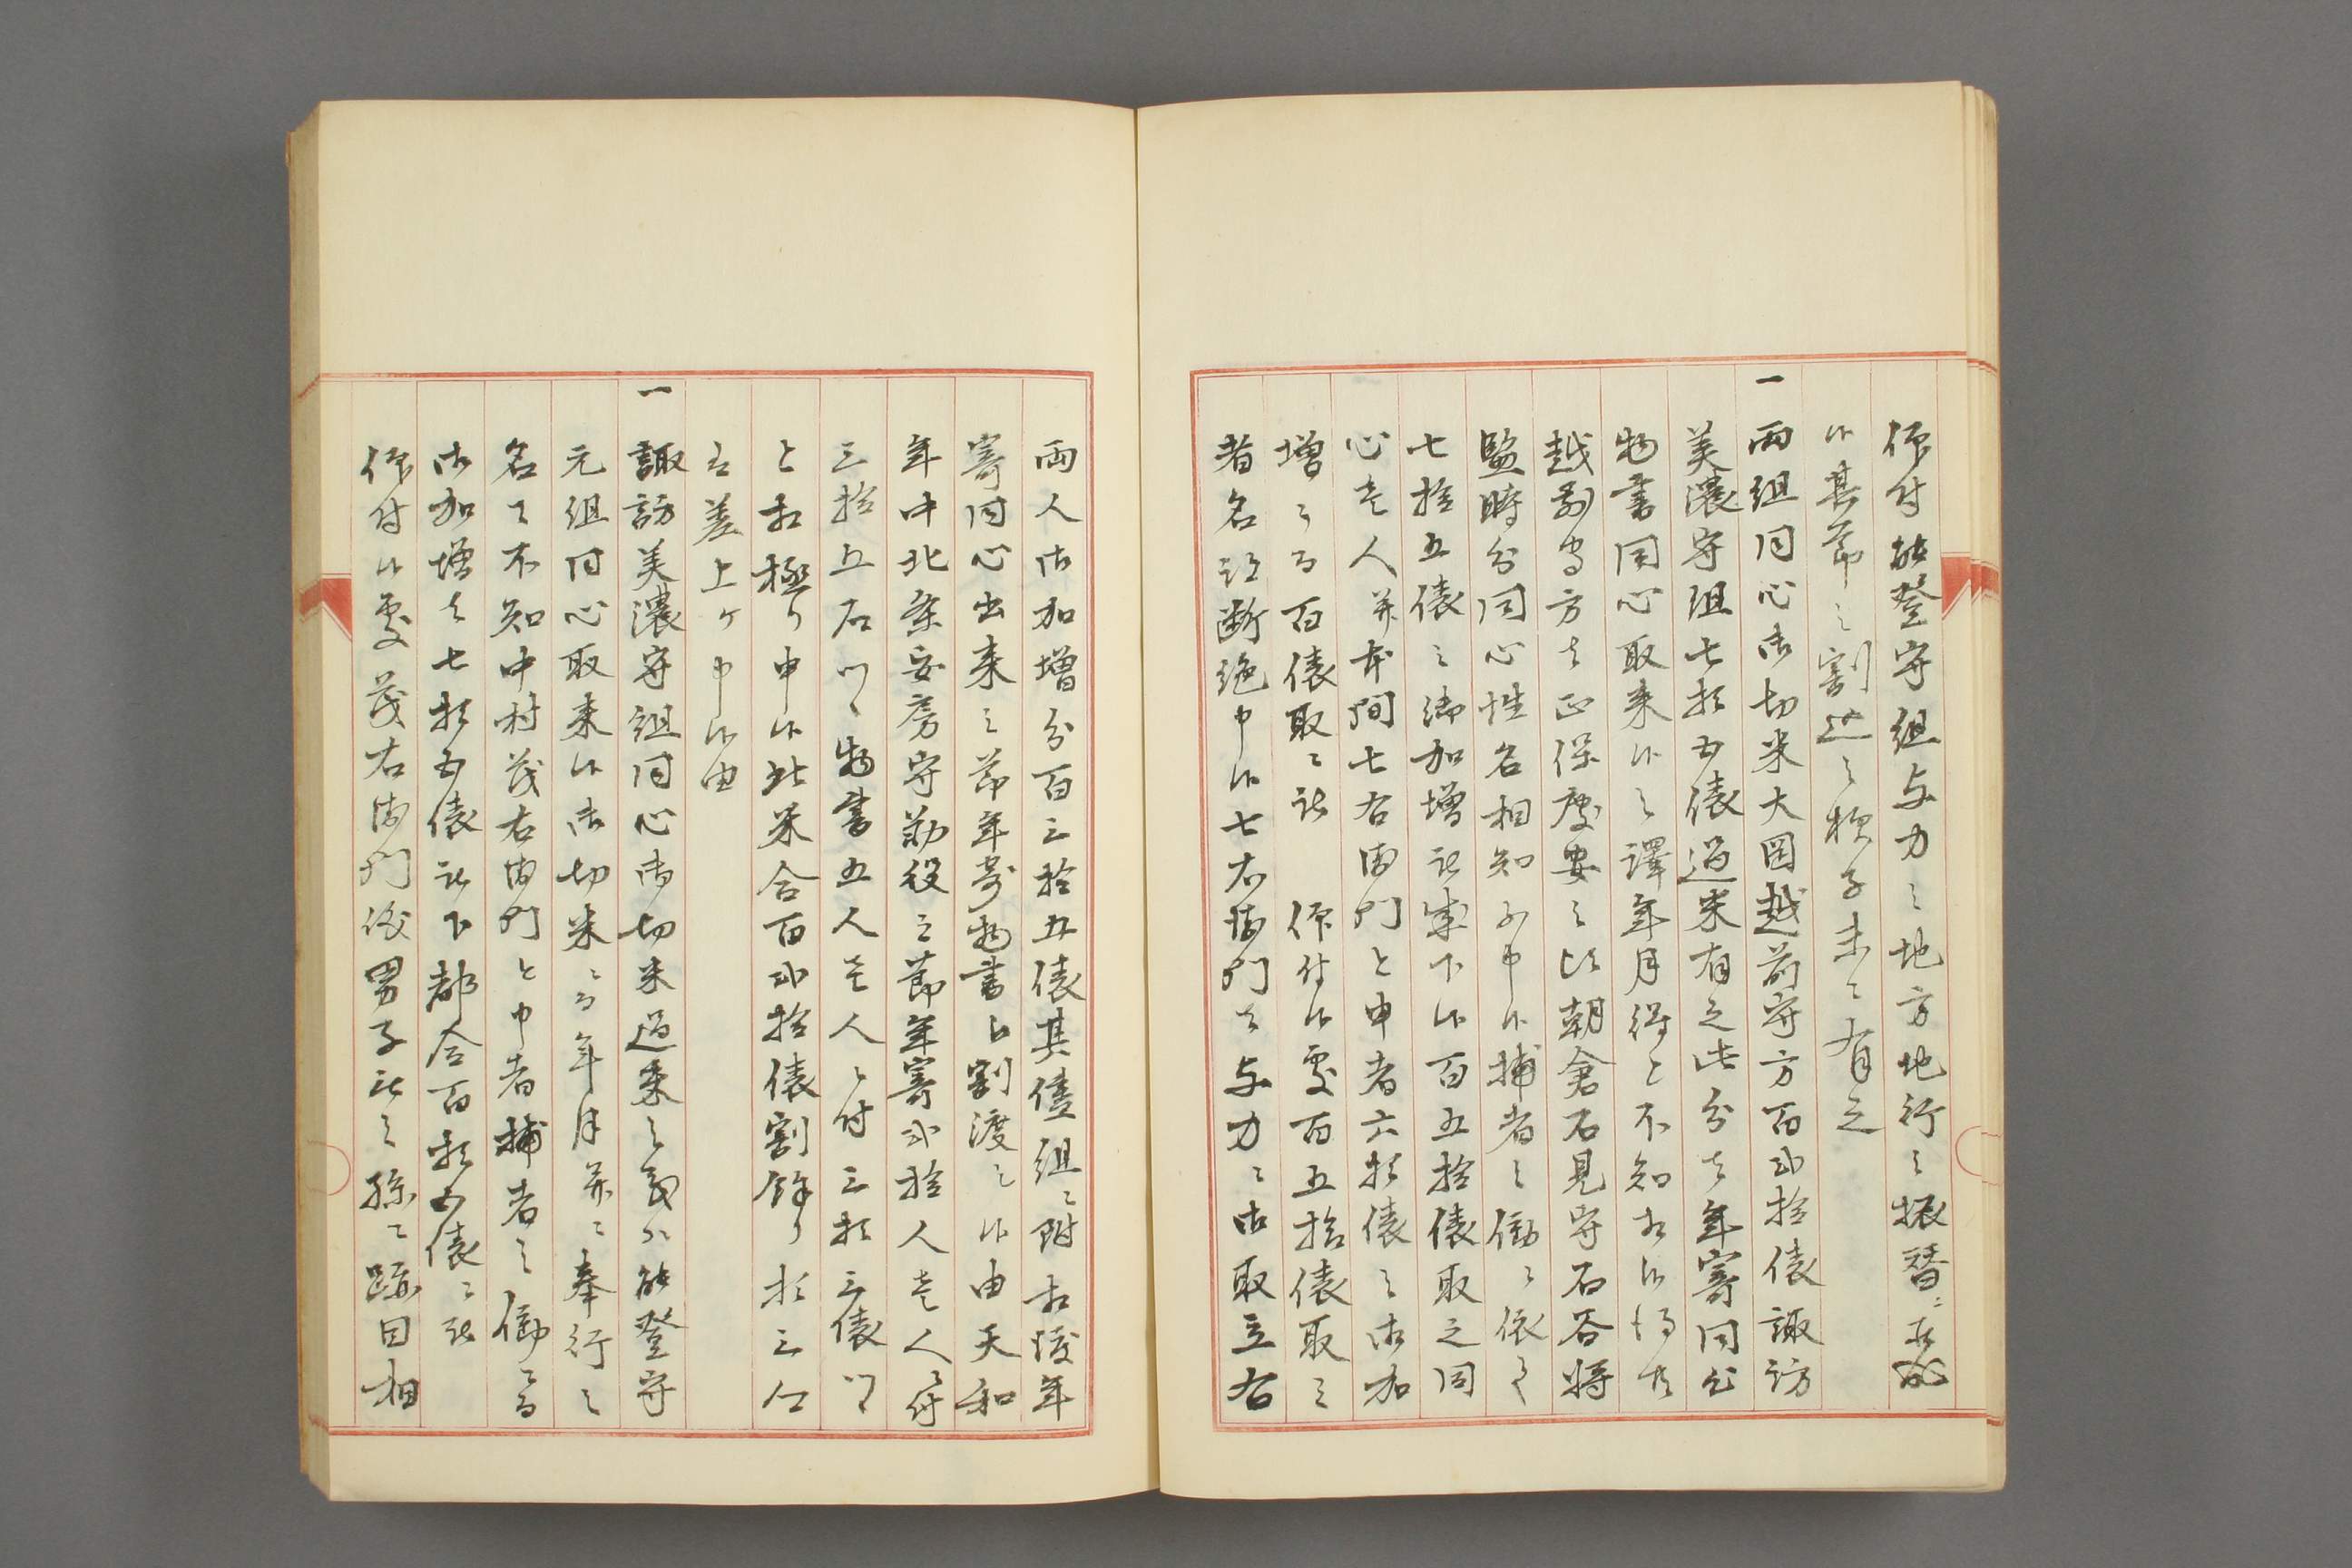 仰付能登守組与力之地方地行之振替ニ
候其節之割迄之様子未ニ有之
一両組同心御切米大岡越前守方百弐拾俵諏訪
美濃守組七拾五俵過米有之此分者年寄同心
物書同心取来候之譯年月得と不知
越前守方者正保慶安之比朝倉石見守石谷将
監時分同心性名相知不申候捕者之働ニ依而
七拾五俵之御加増被成下候百五拾俵取之同
心壱人并本間七右衛門と申者六拾俵之御加
増ニ而百俵取ニ被 仰付候處百五拾俵取之
者名跡断絶申候七右衛門者与力ニ御取立右
両人御加増分百三拾五俵其儘組ニ附相殘年
寄同心出来之節年寄物書江割渡之候由天和
年中北条安房守勤役之節年寄弐拾人壱人ニ付
三拾五石ツヽ物書五人壱人ニ付三拾三俵ツヽ
と相極り申候此米合百弐拾俵割餘り拾三人
江差上ケ申候由
一諏訪美濃守組同心御切米過来之義ハ能登守
元組同心取来候御切米ニ而年月并ニ奉行之
名も不知中村茂右衛門と申者捕者之働ニ而
御加増者七拾五俵被下都合百拾五俵ニ被
仰付候處茂右衛門後男子無之孫ニ跡目相